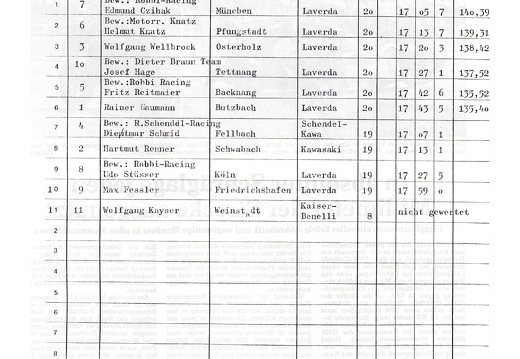 Bew.: Robbi-Racing
1 7 Edmund Czihak München Laverda 2o 17 o5 7 14o,39
Bew.:Motorr. Knatz
2 6 Helmut Knatz Pfungstadt Laverda 2o 17 13 7 139,31
3 3 Wolfgang Wellbrock Osterholz Laverda 2o 17 2o 3 138,42
Bew.: Dieter Braun Team
4 1o Josef Hage Tettnang Laverda 2o 17 27 1 137,52
Bew.:Robbi Racing
5 5 Fritz Reitmaier Backnang Laverda 2o 17 42 6 135,52
6 1 Rainer Gaumann Butzbach Laverda 2o 17 43 5 135,4o
Bew.: R.Schendel-Racing Schendel-
7 4 Dietmar Schmid Fellbach Kawa 19 17 o7 1
8 2 Hartmut Renner Schwabach Kawasaki 19 17 13 1
Bew.: Robbi-Racing
9 8 Udo Stüsser Köln Laverda 19 17 27 5
10 9 Max Fessler Friedrichshafen Laverda 19 17 59 o
Kaiser-
11 11 Wolfgang Kayser Weinstadt Benelli 8 nicht gewertet
2
3
4
5
6
7
8